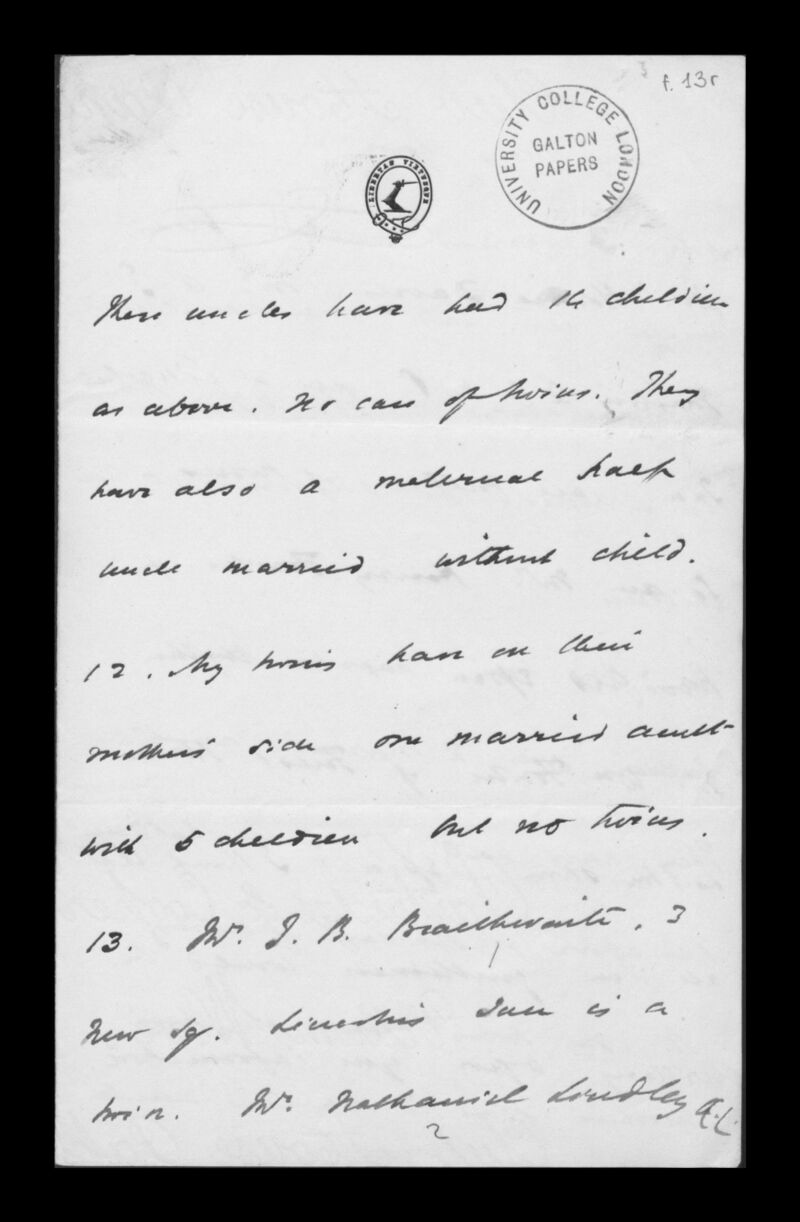 3
f. 13r
UNIVERSITY COLLEGE LONDON
GALTON
PAPERS
LIBERTAS VIRTUSQUE
These uncles have had 14 children
as above. No case of twins. They
have also a maternal half
uncle married without child.
12. My twins have on their
mothers' side one married aunt
with 5 children but no twins.
13. Mr. J. B. Braithwaite, 3
New Sq. Lincolns Inn is a
twin. Mr. Nathaniel Lindley Q.C.
2